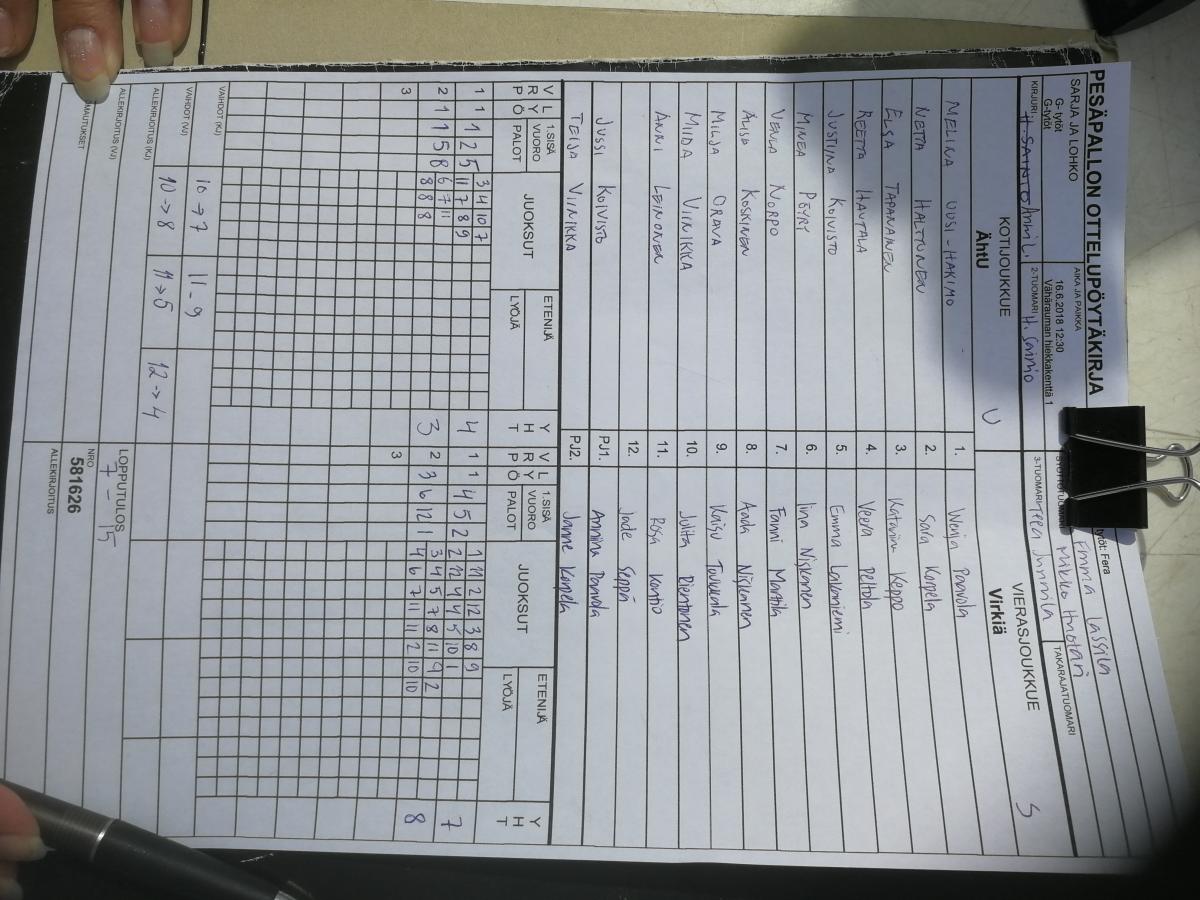 PESÄPALLON OTTELUPÖYTÄKIRJA
SARJA JA LOHKO
G- tytöt
G-tytöt
AIKA JA PAIKKA
16.6.2018 12:30
Vähärauman hiekkakenttä 1
tytöt: Fera
Emma Lassila
Mikko Huotari
KIRJURI
2-TUOMARI H. Sainio
3-TUOMARI Teea Junnila
TAKARAJATUOMARI
KOTIJOUKKUE
ÄhtU
U
VIERASJOUKKUE
Virkiä
S
MELINA UUSI-HAKIMO 1. Wenja Paavola
NETTA HALTTUNEN 2. Sara Korpela
ELSA TAPANAINEN 3. Katariina Keppo
REETTA HAUTALA 4. Veera Peltola
JUSTIINA KOIVISTO 5. Emma Lakaniemi
MINEA PÖYRY 6. Iina Niskanen
VENLA NORPO 7. Fanni Marttila
ALISA KOSKINEN 8. Aada Niskanen
MILJA ORAVA 9. Kaisu Toukkala
MIIDA VIINIKKA 10. Julita Rientonen
ANNI LEINONEN 11. Rosa Kontio
12. Jade Seppä
JUSSI KOIVISTO PJ1. Annina Paavola
TEIJA VIINIKKA PJ2. Janne Korpela
V R L Y P Ö 1.SISÄ VUORO PALOT JUOKSUT ETENIJÄ LYÖJÄ Y H T V R L Y P Ö 1.SISÄ VUORO PALOT JUOKSUT ETENIJÄ LYÖJÄ Y H T
1 1 1 2 5 3 4 10 7 4 1 1 4 5 2 1 11 2 12 3 8 9 7
11 7 8 9 2 12 4 4 5 10 1
2 1 1 5 8 6 7 11 3 2 3 6 12 1 3 4 5 7 8 11 9 2 8
8 8 8 4 6 7 11 11 2 10 10
3 3
VAIHDOT (KJ)
VAIHDOT (VJ)
10→7 11-9
ALLEKIRJOITUS (KJ)
10→8 11→5 12→4
ALLEKIRJOITUS (VJ)
LOPPUTULOS
7 - 15
HUOMAUTUKSET
NRO
581626
ALLEKIRJOITUS